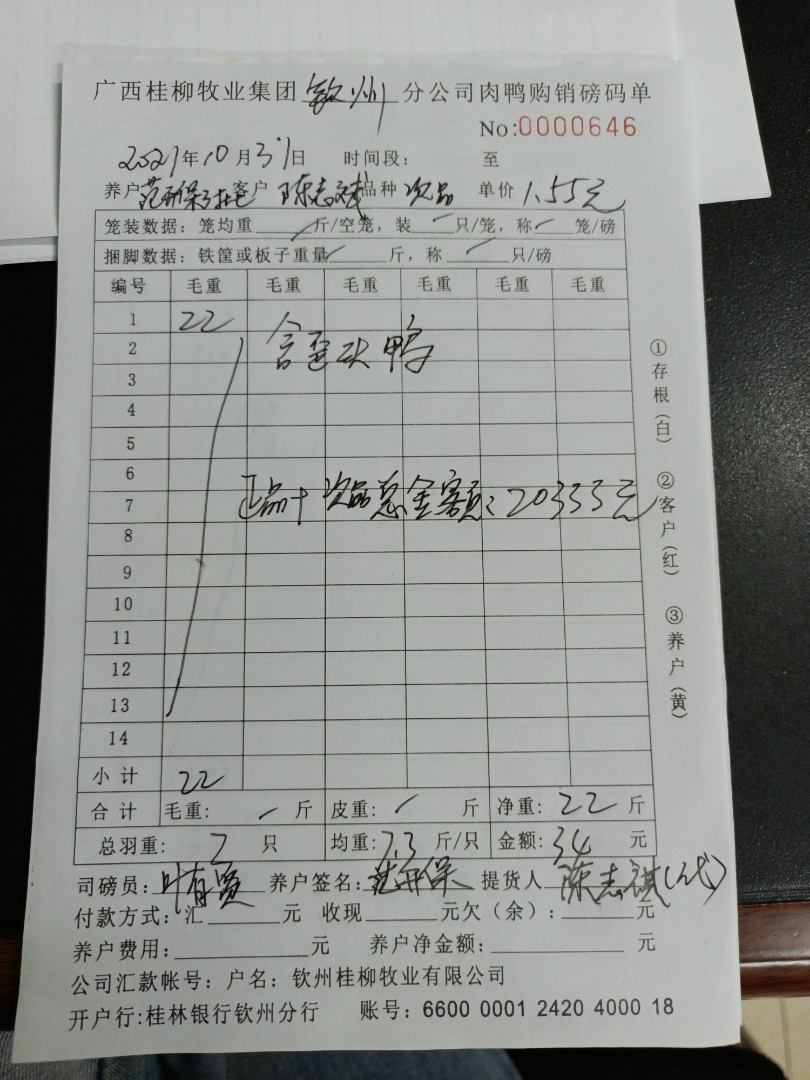 广西桂柳牧业集团 钦州 分公司肉鸭购销磅码单
No:0000646
2021年10月31日 时间段: 至
养户 客户 陈志斌 品种 次品 单价 1.55元
笼装数据:笼均重 / 斤/空笼,装 / 只/笼,称 / 笼/磅
捆脚数据:铁筐或板子重量 / 斤,称 / 只/磅
编号 毛重 毛重 毛重 毛重 毛重 毛重
1 22
2 含歪头鸭
3
4
5
6
7 正品+次品总金额:20355元
8
9
10
11
12
13
14
小计 22
合计 毛重: / 斤 皮重: / 斤 净重: 22 斤
总羽重: 7 只 均重: 7.3 斤/只 金额: 34 元
司磅员:叶有贤 养户签名: 提货人 陈志祺(代)
付款方式:汇 元 收现 元欠(余): 元
养户费用: 元 养户净金额: 元
公司汇款帐号:户名:钦州桂柳牧业有限公司
开户行:桂林银行钦州分行 账号:6600 0001 2420 4000 18
①存根(白) ②客户(红) ③养户(黄)